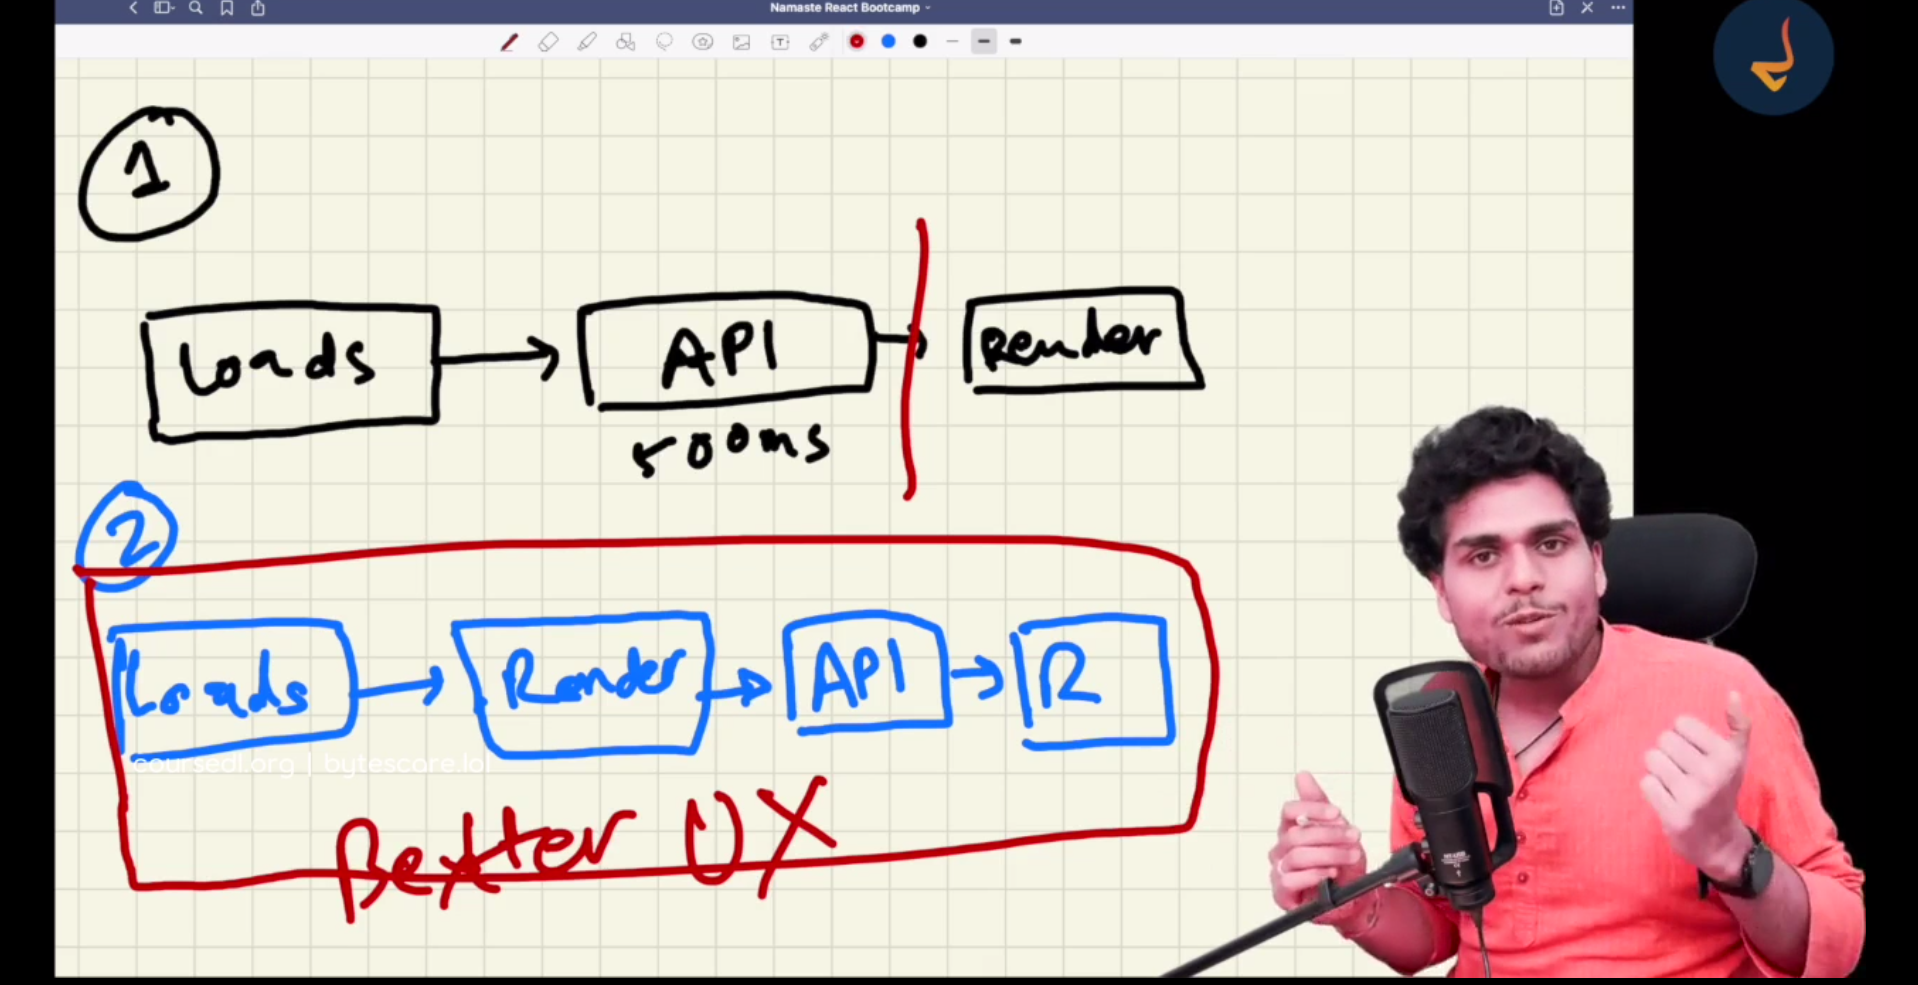 Namaste React Bootcamp
1
Loads
API
Render
500ms
2
Loads
Render
API
R
coursedl.org | bytescare.lol
Better UX